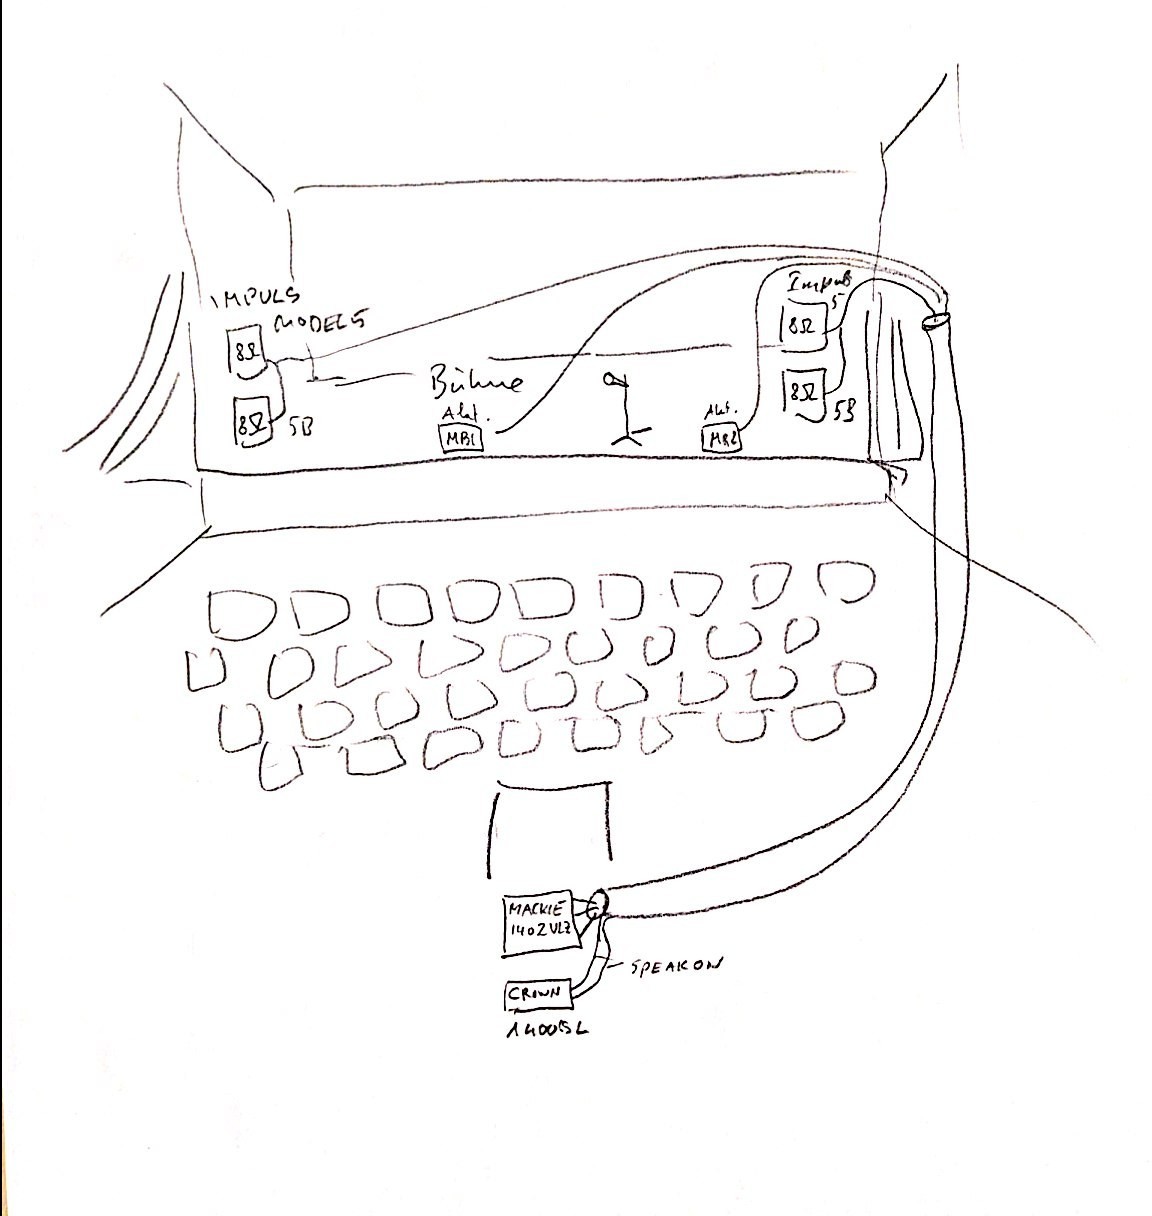 IMPULS
MODEL 5
8Ω
8Ω
5B
Bühne
Akt.
MB1
Akt.
MB2
Impuls
5
8Ω
8Ω
5B
MACKIE
1402VLZ
SPEAKON
CROWN
1400SL